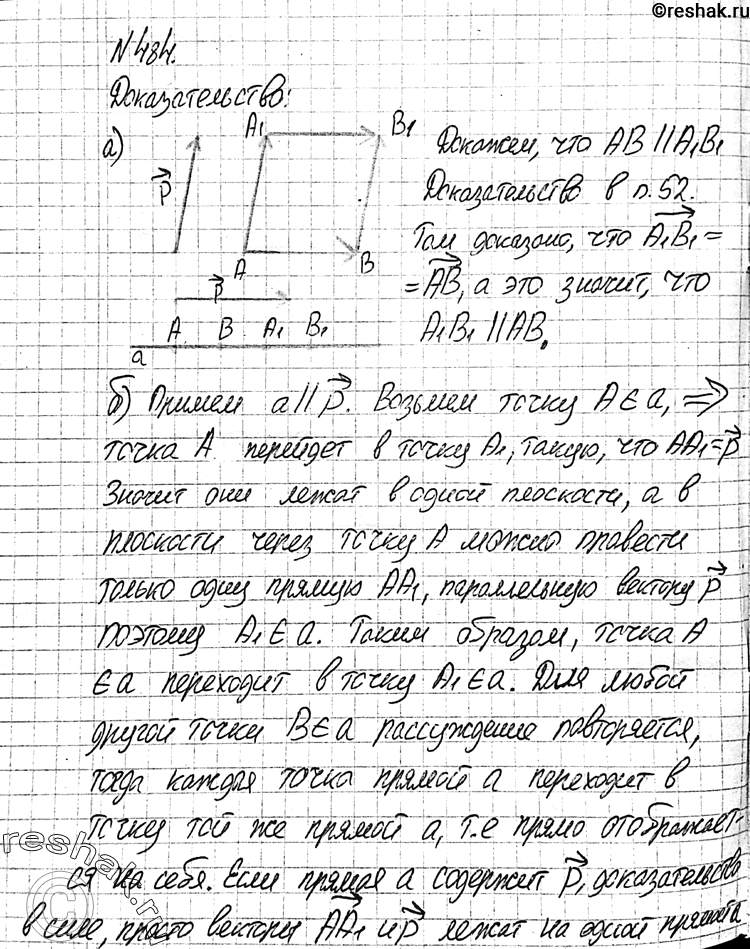 ©reshak.ru
№484.
Доказательство:
а) A₁ B₁ Докажем, что AB || A₁B₁
p⃗ Доказательство в п. 52.
Там доказано, что A₁B₁⃗ =
A B = AB⃗, а это значит, что
p⃗
A B A₁ B₁ A₁B₁ || AB.
a
б) Примем a || p⃗. Возьмем точку A ∈ a, ⇒
точка A перейдет в точку A₁, такую, что AA₁ = p⃗
Значит они лежат в одной плоскости, а в
плоскости через точку A можно провести
только одну прямую AA₁, параллельную вектору p⃗
поэтому A₁ ∈ a. Таким образом, точка A
∈ a переходит в точку A₁ ∈ a. Для любой
другой точки B ∈ a рассуждение повторяется,
тогда каждая точка прямой a переходит в
точку той же прямой a, т.е прямо отображает-
ся на себя. Если прямая a содержит p⃗, доказательство
в силе, просто векторы AA₁⃗ и p⃗ лежат на одной прямой
reshak.ru